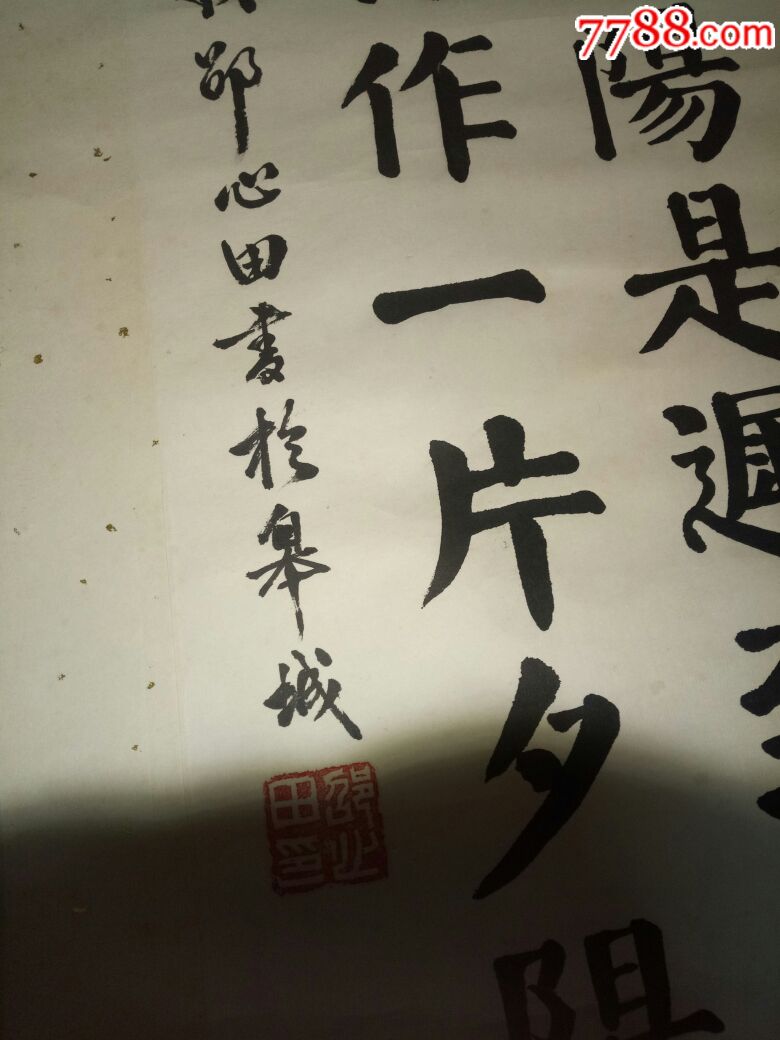 7788.com
陽是遲
作一片夕陽
邵心田書於皋城
邵心田印